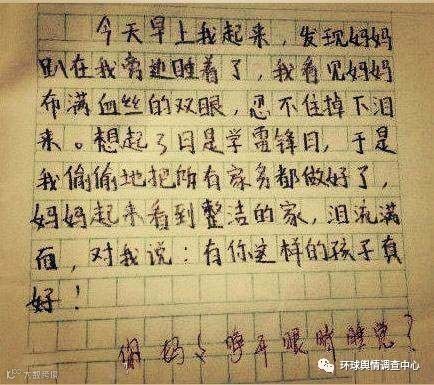 今天早上我起来，发现妈妈
趴在我旁边睡着了，我看见妈妈
布满血丝的双眼，忍不住掉下泪
来。想起3日是学雷锋日，于是
我偷偷地把所有家务都做好了，
妈妈起来看到整洁的家，泪流满
面，对我说：有你这样的孩子真
好！
你妈妈睁开眼睛睡觉？
大数跨境
环球舆情调查中心